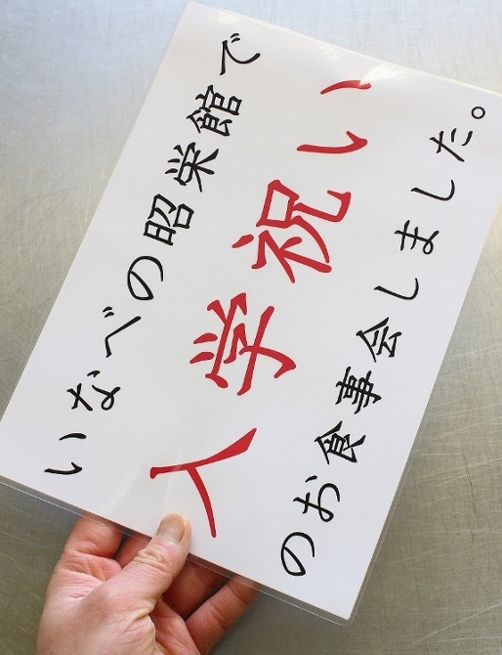 いなべの昭栄館で
入学祝い
のお食事会しました。